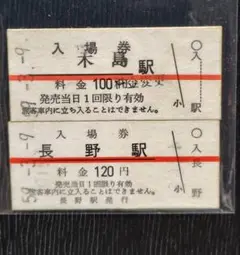 入場券
木島駅
料金100円
発売当日1回限り有効
旅客車内に立ち入ることはできません。
○入
小駅
入場券
長野駅
料金120円
発売当日1回限り有効
旅客車内に立ち入ることはできません。
長野駅発行
○入長
小野
59.-3.-9